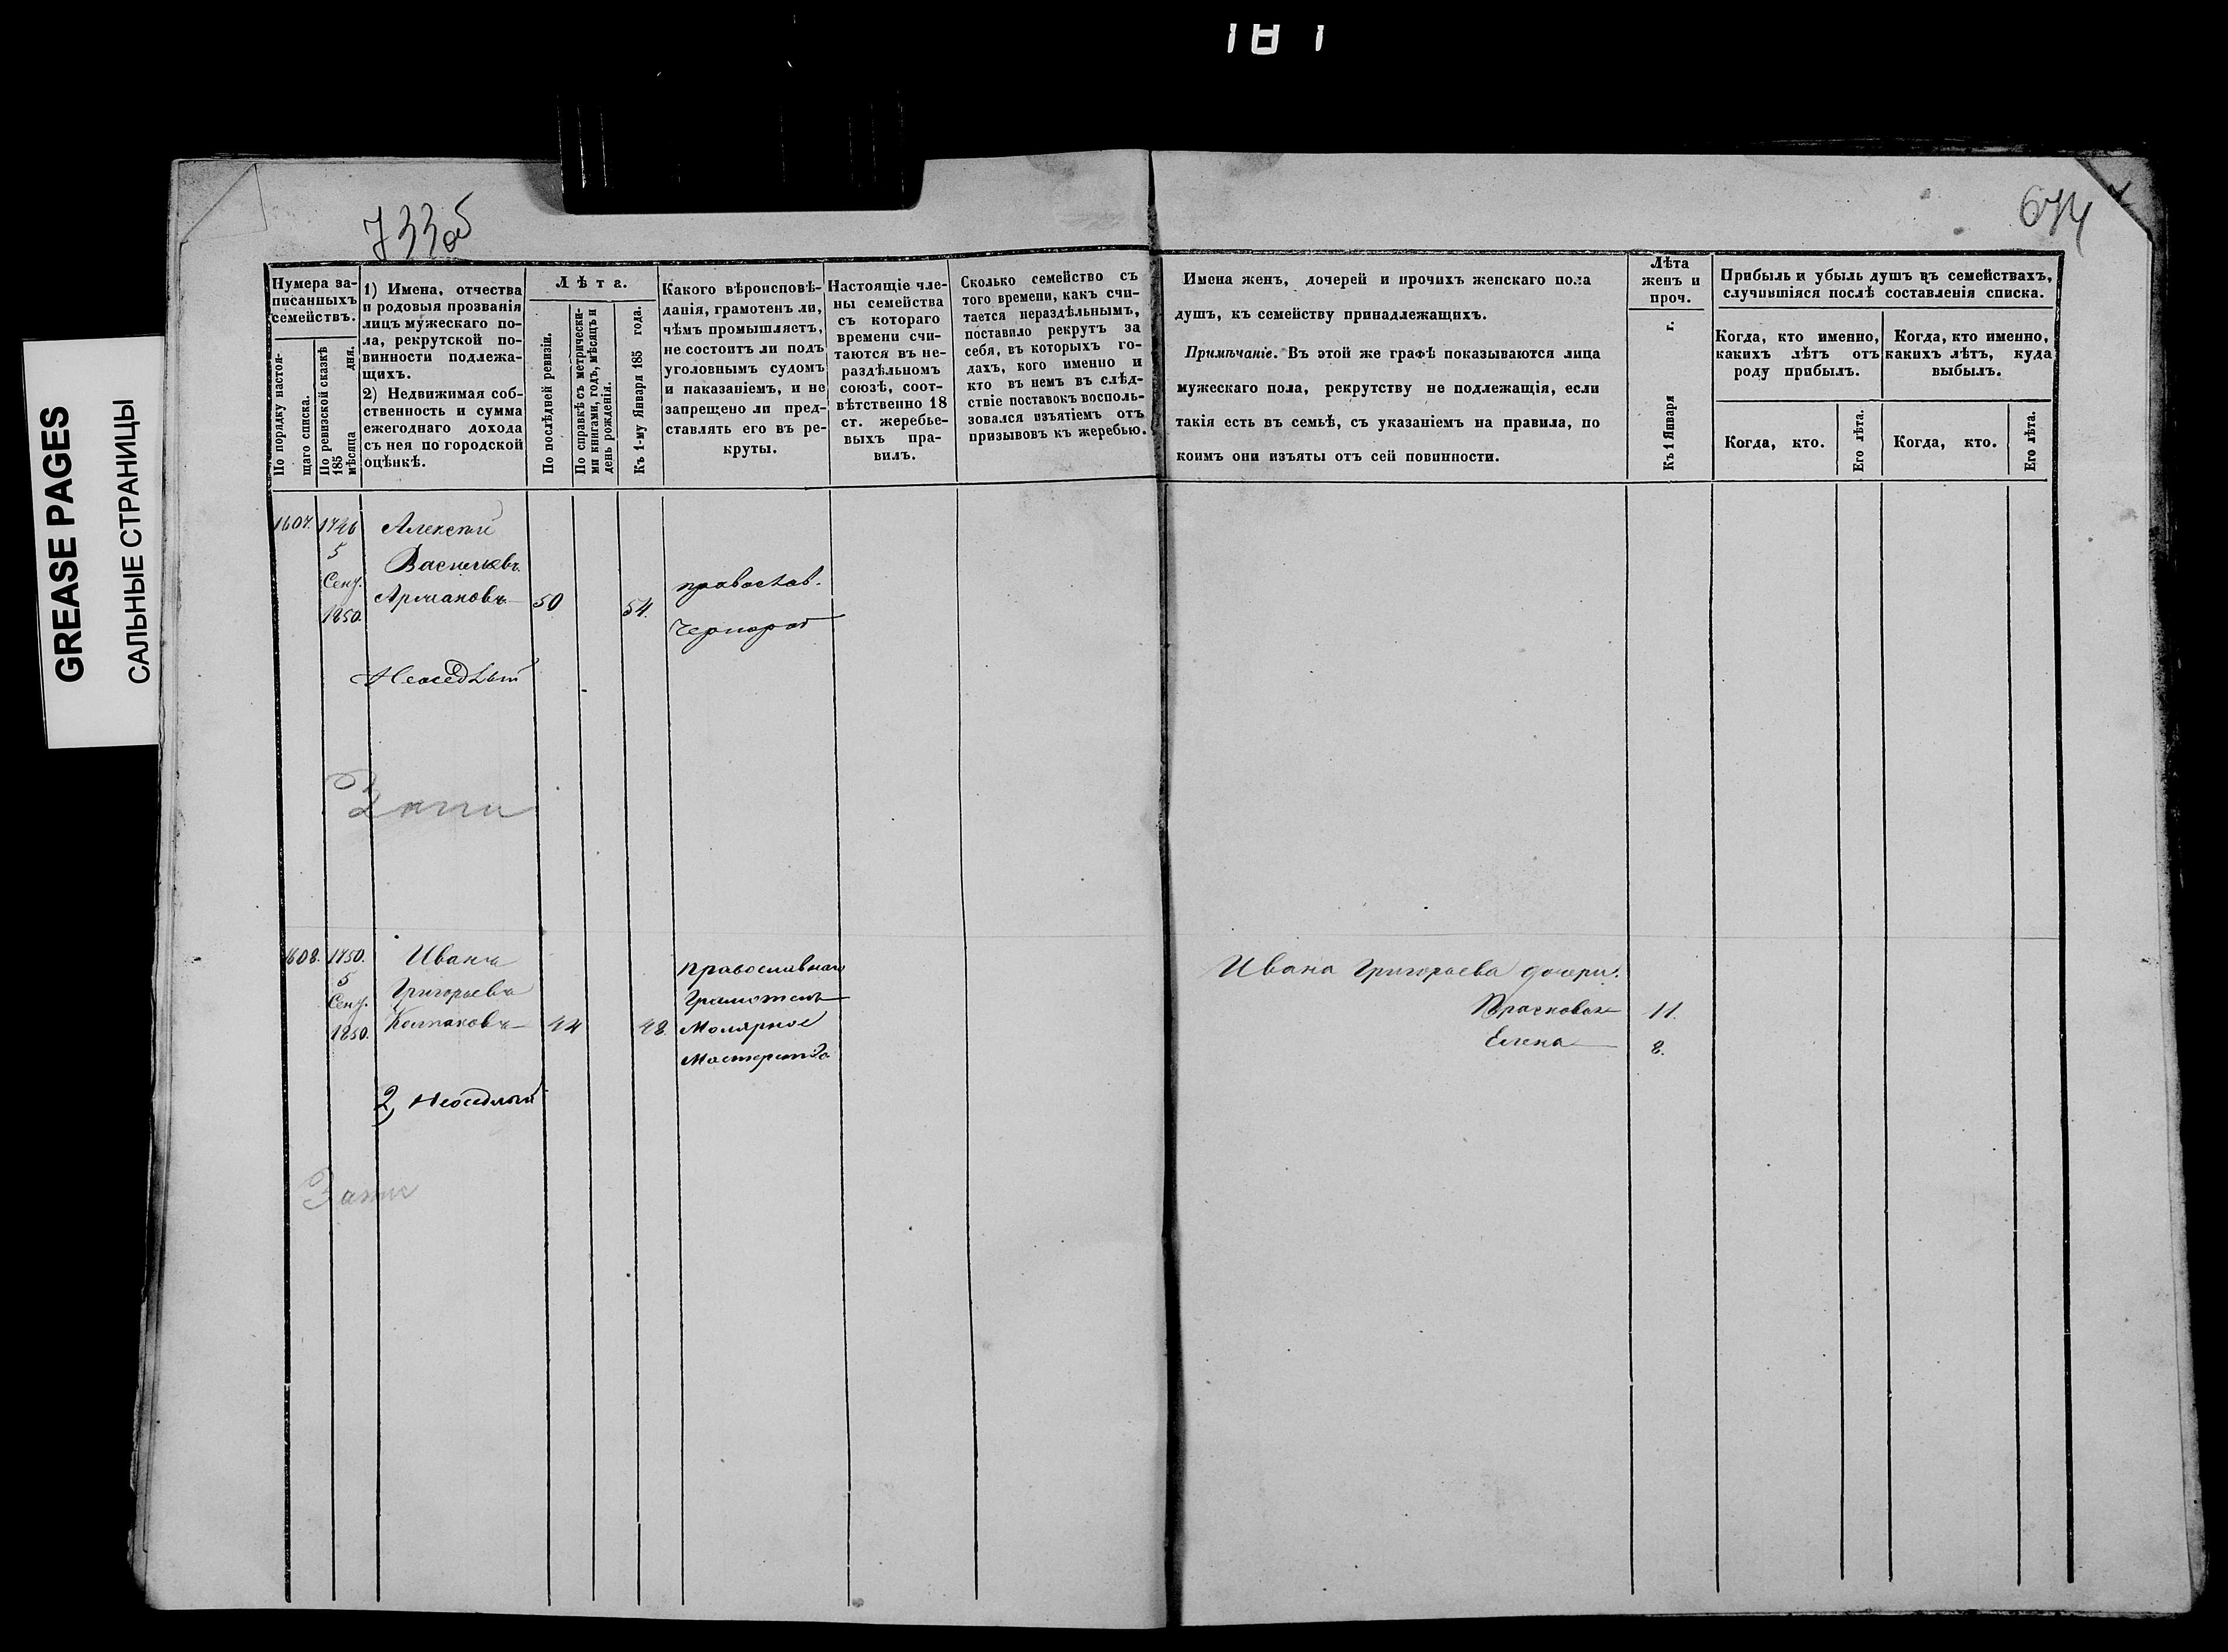 181
GREASE PAGES
САЛЬНЫЕ СТРАНИЦЫ
733об
674
Нумера за-
писанныхъ
семействъ.
По порядку настоя-
щаго списка.
По ревизской сказкѣ
185 дня.
мѣсяца
1) Имена, отчества
и родовыя прозванія
лицъ мужескаго по-
ла, рекрутской по-
винности подлежа-
щихъ.
2) Недвижимая соб-
ственность и сумма
ежегоднаго дохода
съ нея по городской
оцѣнкѣ.
Лѣта.
По послѣдней ревизіи.
По справкѣ съ метрически-
ми книгами, годъ, мѣсяцъ и
день рожденія.
Къ 1-му Января 185 года.
Какого вѣроисповѣ-
данія, грамотенъ ли,
чѣмъ промышляетъ,
не состоитъ ли подъ
уголовнымъ судомъ
и наказаніемъ, и не
запрещено ли пред-
ставлять его въ ре-
круты.
Настоящіе чле-
ны семейства
съ котораго
времени счи-
таются въ не-
раздѣльномъ
союзѣ, соот-
вѣтственно 18
ст. жеребье-
выхъ пра-
вилъ.
Сколько семейство съ
того времени, какъ счи-
тается нераздѣльнымъ,
поставило рекрутъ за
себя, въ которыхъ го-
дахъ, кого именно и
кто въ немъ въ слѣд-
ствіе поставокъ восполь-
зовался изъятіемъ отъ
призывовъ къ жеребью.
Имена женъ, дочерей и прочихъ женскаго пола
душъ, къ семейству принадлежащихъ.
Примѣчаніе. Въ этой же графѣ показываются лица
мужескаго пола, рекрутству не подлежащія, если
такія есть въ семьѣ, съ указаніемъ на правила, по
коимъ они изъяты отъ сей повинности.
Лѣта
женъ и
проч.
Къ 1 Января г.
Прибыль и убыль душъ въ семействахъ,
случившіяся послѣ составленія списка.
Когда, кто именно,
какихъ лѣтъ отъ
роду прибылъ.
Когда, кто именно,
какихъ лѣтъ, куда
выбылъ.
Когда, кто.
Его лѣта.
Когда, кто.
Его лѣта.
1607. 1746
5
Сент.
1850.
Алексѣй
Васильевъ
Армановъ 50 54.
православ.
Чернораб
Неоседлый
1608. 1750.
5
Сент.
1850.
Иванъ
Григорьевъ
Колпаковъ 44 48.
Православнаго
Грамотенъ
Молярное
Мастерство
2, Неоседлый
Ивана Григорьева дочери.
Прасковья 11.
Елена 8.